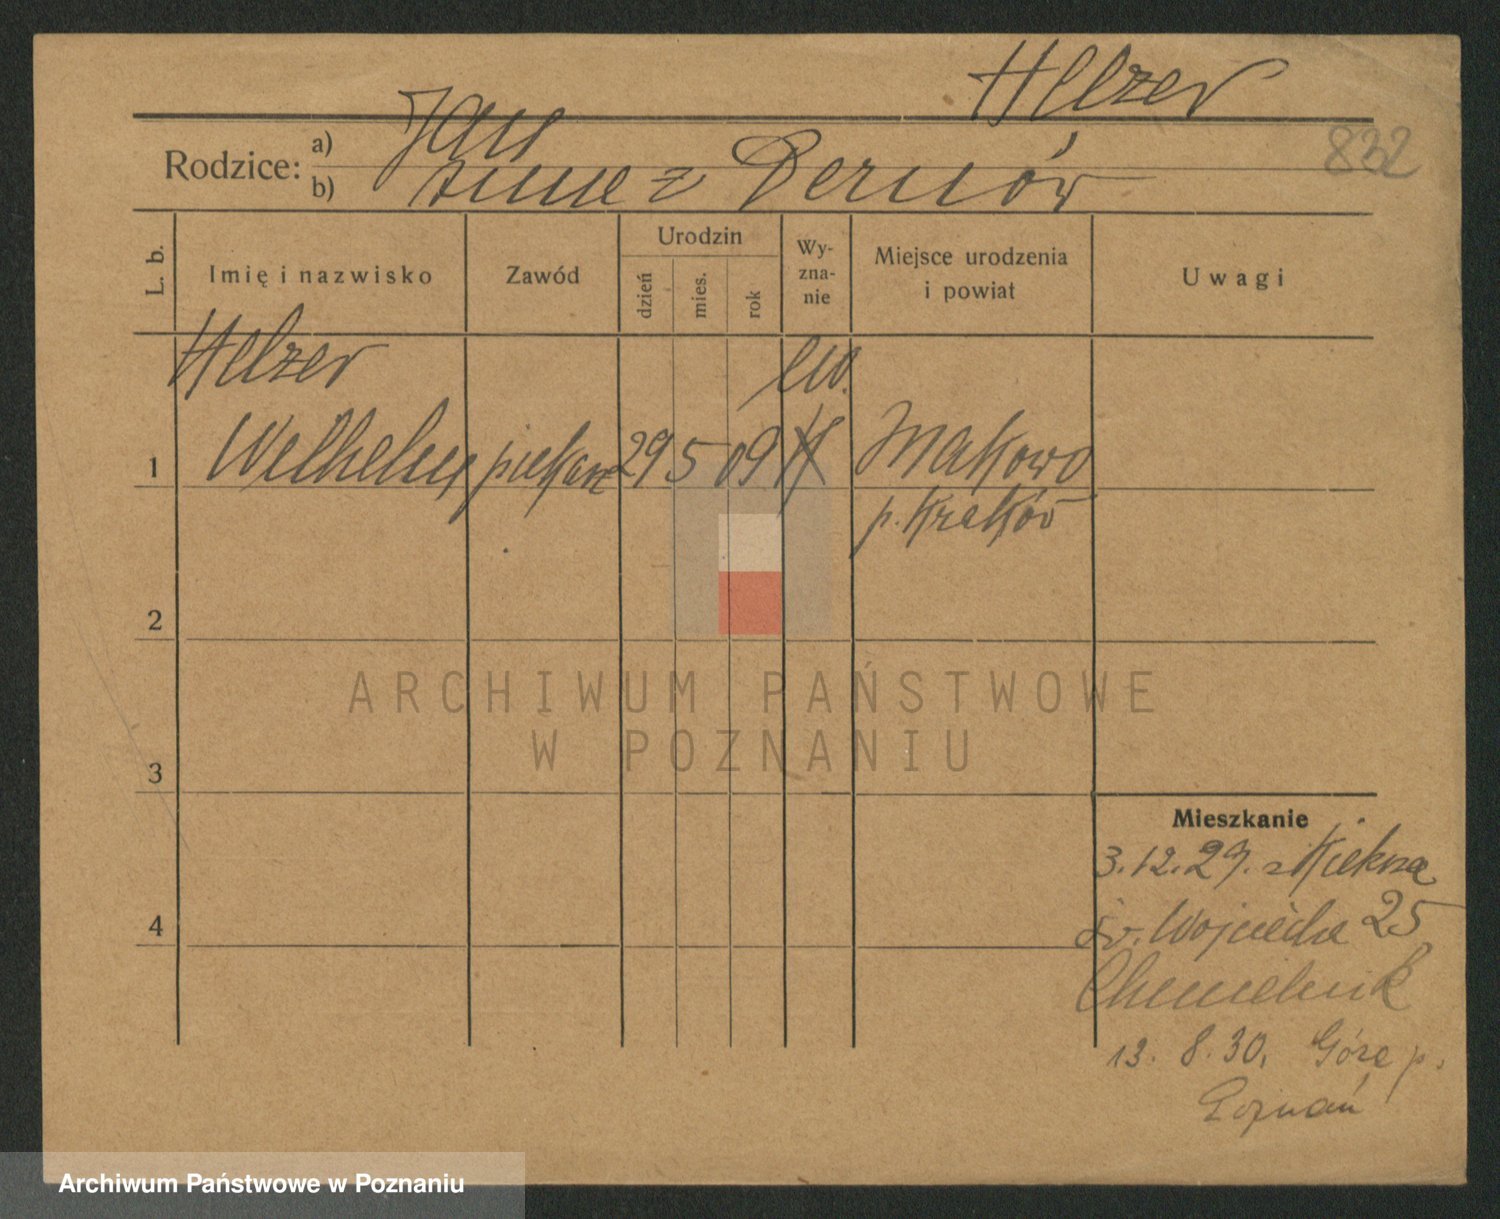 Helzer
832
Rodzice: a) Jan
b) Anne z Dernów
L. b.
Imię i nazwisko
Zawód
Urodzin
dzień
mies.
rok
Wy-
zna-
nie
Miejsce urodzenia
i powiat
Uwagi
Helzer
ew.
1 Wilhelm piekarz 29 5 09 Makowo
p. Kraków
2
3
4
Mieszkanie
3.12.29. z Kiekrza
św. Wojciecha 25
Chmielnik
13. 8. 30. Góra p.
Poznań
ARCHIWUM PAŃSTWOWE
W POZNANIU
Archiwum Państwowe w Poznaniu